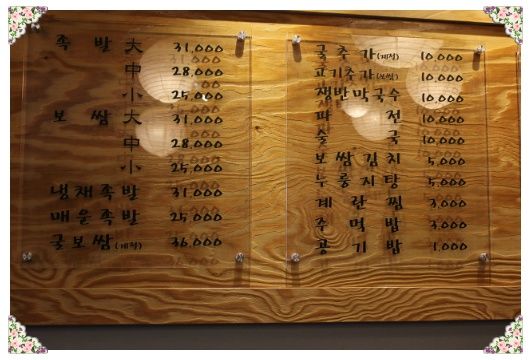 족 발 大 31,000
中 28,000
小 25,000
보 쌈 大 31,000
中 28,000
小 25,000
냉채족발 31,000
매운족발 25,000
굴보쌈(계절) 36,000
굴추가(계절) 10,000
고기추가(보쌈) 10,000
쟁반막국수 10,000
파 전 10,000
술 국 10,000
보쌈김치 5,000
누룽지탕 5,000
계란찜 3,000
주먹밥 3,000
공기밥 1,000